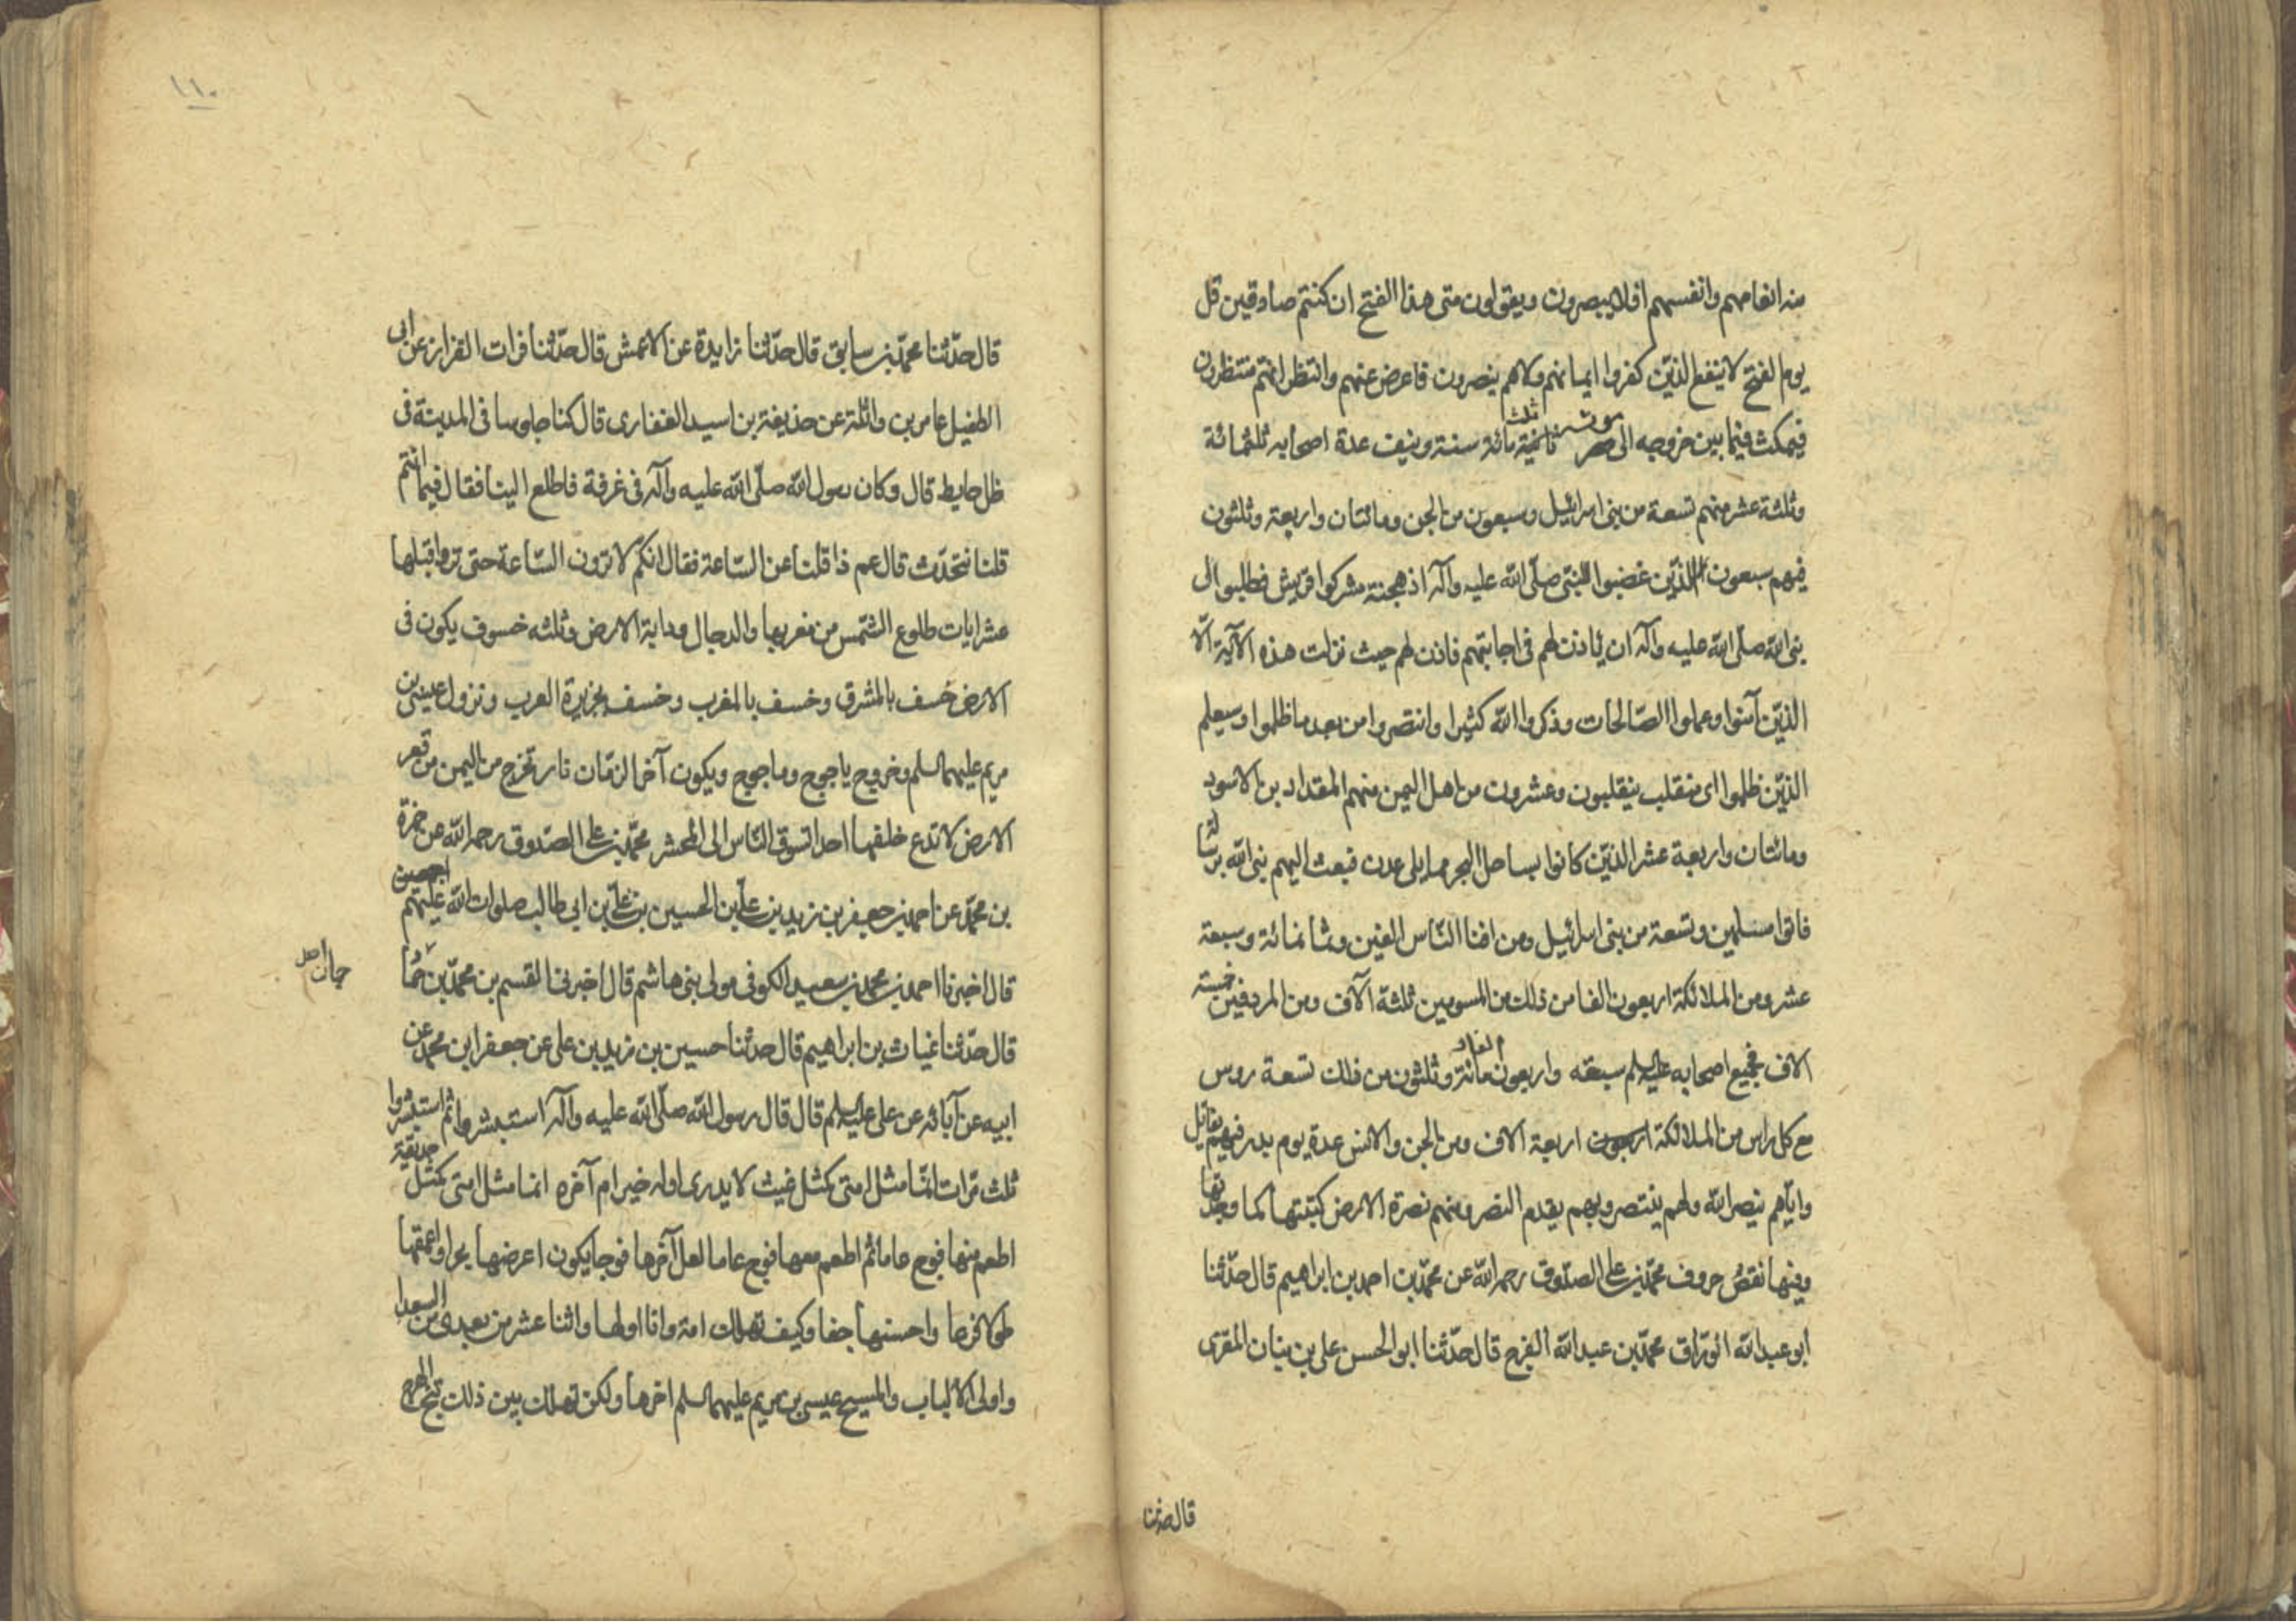 منه انعامهم وانفسهم افلا يبصرون ويقولون متى هذا الفتح ان كنتم صادقين قل
يوم الفتح لا ينفع الذين كفروا ايمانهم ولا هم ينصرون فاعرض عنهم وانتظر انهم منتظرون
فيمكث فيما بين خروجه الى يوم موته ثلثمائة سنة ونيف عدة اصحابه ثلثمائة
وثلثة عشر منهم تسعة من بنى اسرائيل وسبعون من الجن ومائتان واربعة وثلثون
فيهم سبعون الذين غضبوا للنبى صلّى الله عليه وآله اذ هجنته مشركوا قريش فطلبوا الى
نبى الله صلّى الله عليه وآله ان يأذن لهم فى اجابتهم فاذن لهم حيث نزلت هذه الآية الّا
الذين آمنوا وعملوا الصّالحات وذكروا الله كثيرا وانتصروا من بعد ما ظلموا وسيعلم
الذين ظلموا اى منقلب ينقلبون وعشرون من اهل اليمن منهم المقداد بن الاسود
ومائتان واربعة عشر الذين كانوا بساحل البحر مما يلى عدن فبعث اليهم نبى الله برسالة
فاتوا مسلمين وتسعة من بنى اسرائيل ومن افنا النّاس الفين وثمانمائة وسبعة
عشر ومن الملائكة اربعون الفا من ذلك من المسومين ثلثة الآف ومن المردفين خمسة
الاف فجميع اصحابه عليه السلم سبعة واربعون الفا و مائة وثلثون من ذلك تسعة روس
مع كل راس من الملائكة اربعة الاف ومن الجن والانس عدة يوم بدر فبهم يقاتل
واياهم ينصر الله وبهم ينتصر وبهم يقدم النصر ومنهم نصرة الارض كتبتها كما وجدتها
وفيها نقص حروف محمّد بن على الصدّوق رحمه الله عن محمّد بن احمد بن ابراهيم قال حدّثنا
ابو عبد الله الورّاق محمّد بن عبد الله الفرج قال حدّثنا ابو الحسن على بن بنان المقرى
قال حدثنا
١١٠
قال حدّثنا محمّد بن سابق قال حدّثنا زايدة عن الاعمش قال حدّثنا فرات القزاز عن ابى
الطفيل عامر بن واثلة عن حذيفة بن اسيد الغفارى قال كنا جلوسا فى المدينة فى
ظل حايط قال وكان رسول الله صلّى الله عليه وآله فى غرفة فاطلع الينا فقال فيما انتم
قلنا نتحدّث قال عم ذا قلنا عن السّاعة فقال انكم لا ترون السّاعة حتى تروا قبلها
عشر ايات طلوع الشّمس من مغربها والدجال ودابة الارض وثلثه خسوف يكون فى
الارض خسف بالمشرق وخسف بالمغرب وخسف بجزيرة العرب ونزول عيسى بن
مريم عليهما السلم وخروج ياجوج وماجوج ويكون آخر الزمّان نار تخرج من اليمن من قعر
الارض لا تدع خلفها احدا تسوق النّاس الى المحشر محمّد بن على الصّدوق رحمه الله عن حمزة
بن محمّد عن احمد بن جعفر بن زيد بن علىّ بن الحسين بن علىّ بن ابى طالب صلوات الله عليهم اجمعين
قال اخبرنا احمد بن محمد بن سعيد الكوفى مولى بنى هاشم قال اخبرنى القسم بن محمّد بن حمّا
جان اصل
قال حدّثنا غياث بن ابراهيم قال حدثنا حسين بن زيد بن على عن جعفر ابن محمّد عن
ابيه عن آبائه عن على عليه السلم قال قال رسول الله صلّى الله عليه وآله استبشروا ثم استبشروا
ثلث مرّات انّما مثل امتى كمثل غيث لا يدرى اوله خير ام آخره انما مثل امتى كمثل حديقة
اطعم منها فوج عاما ثم اطعم معها فوج عاما لعل آخرها فوجا يكون اعرضها بحرا واعمقها
طولا فرعا واحسنها جنا وكيف تهلك امة وانا اولها واثنا عشر من بعدى من السعدا
واولى الالباب والمسيح عيسى بن مريم عليهما السلم اخرها ولكن تهلك بين ذلك نتج الهرج